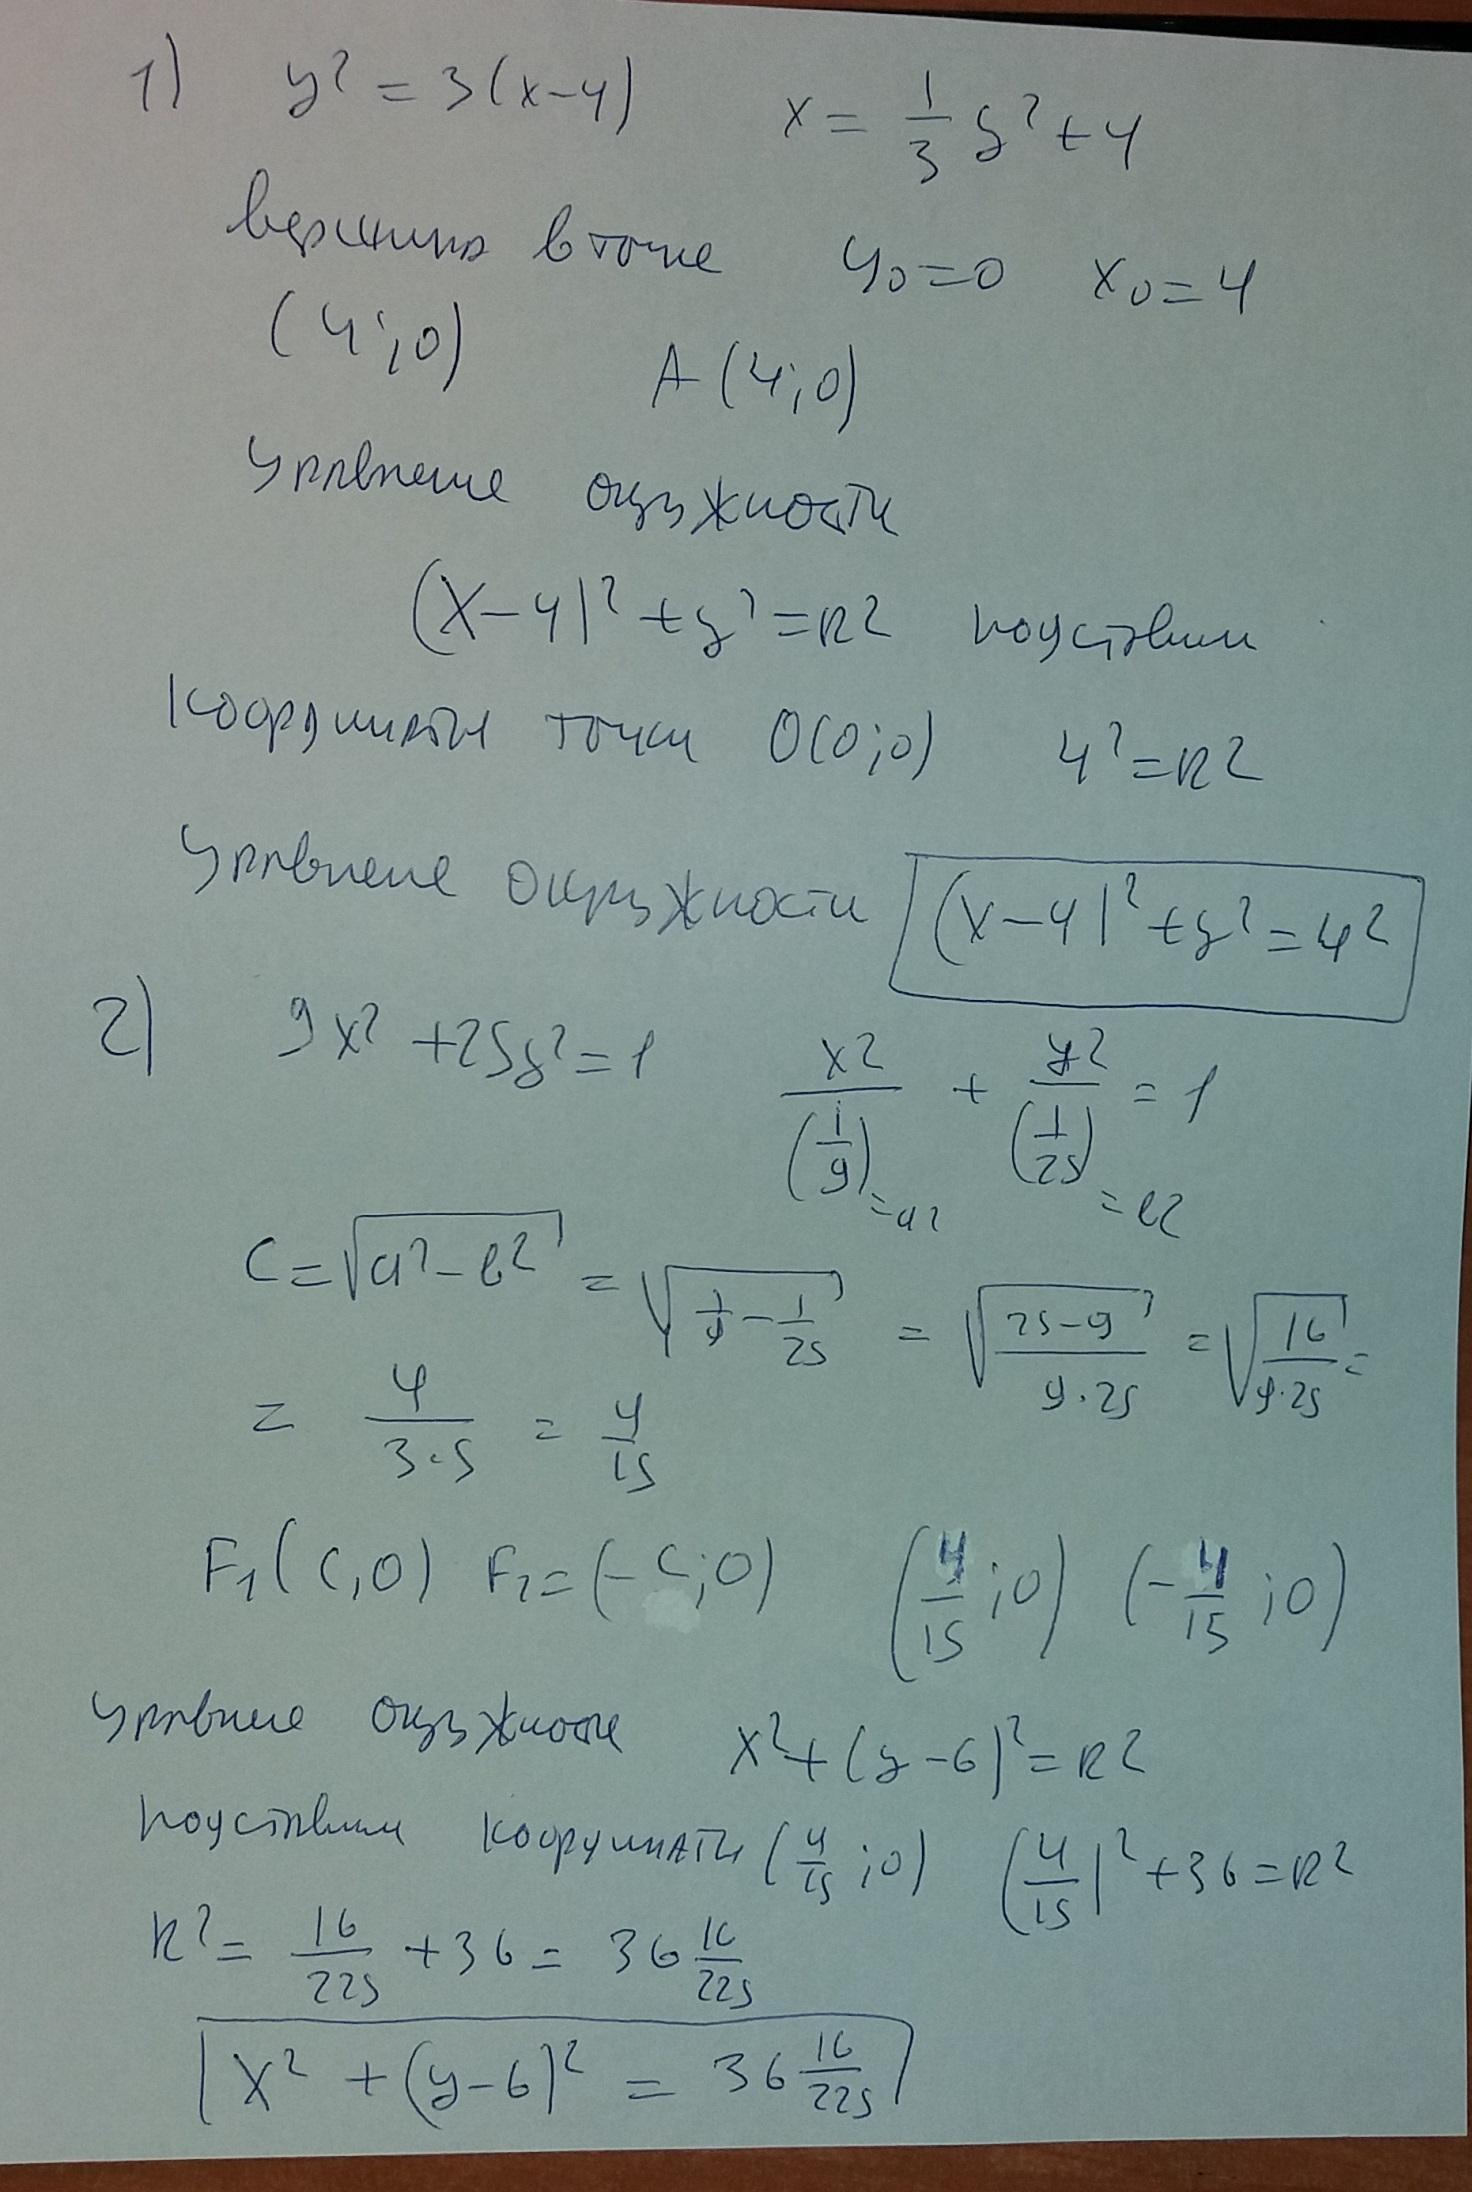 1) y² = 3(x-4) x = 1/3 y² + 4
вершина в точке y₀=0 x₀=4
(4;0) A(4;0)
Уравнение окружности
(x-4)² + y² = R² подставим
координаты точки O(0;0) 4² = R²
Уравнение окружности (x-4)² + y² = 4²
2) 9x² + 25y² = 1 x²/(1/9) + y²/(1/25) = 1
=a² =b²
C = √(a²-b²) = √(1/9 - 1/25) = √((25-9)/(9·25)) = √(16/(9·25)) =
= 4/(3·5) = 4/15
F₁(C,0) F₂=(-C;0) (4/15;0) (-4/15;0)
Уравнение окружности x² + (y-6)² = R²
подставим координаты (4/15;0) (4/15)² + 36 = R²
R² = 16/225 + 36 = 36 16/225
x² + (y-6)² = 36 16/225